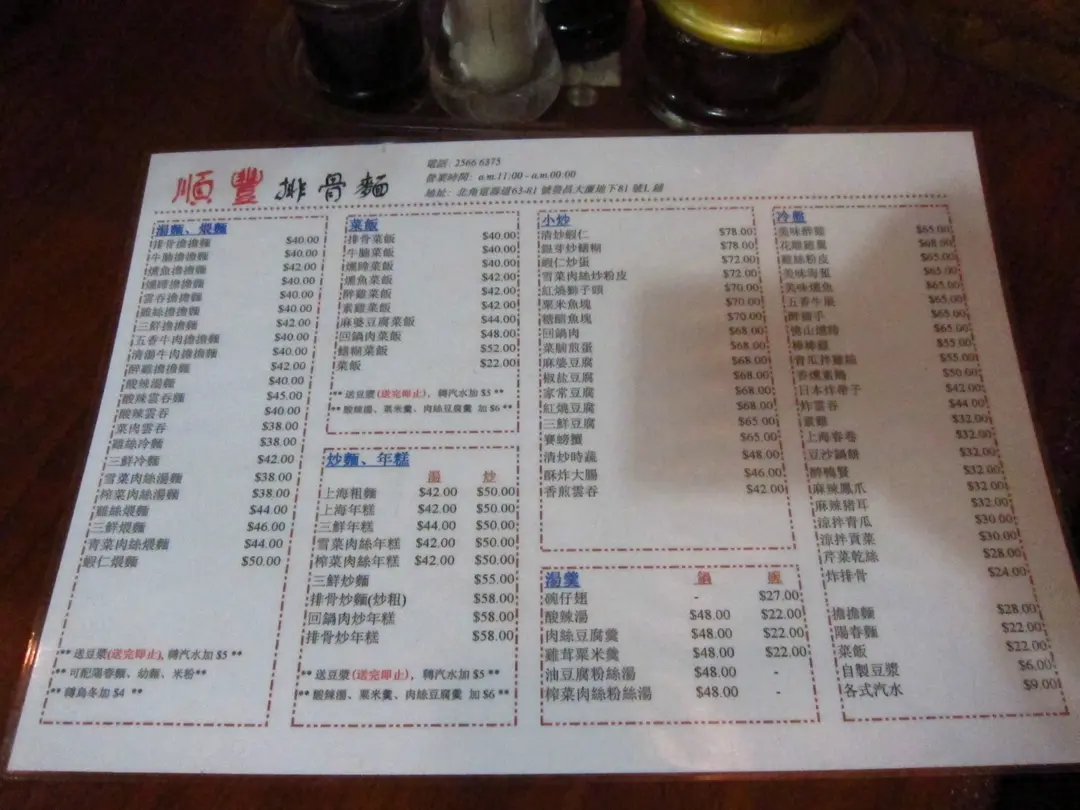 順豐排骨麵
電話: 2566 6375
營業時間: a.m.11:00 - a.m.00:00
地址: 北角電器道63-81 號發昌大廈地下81 號L 鋪
湯麵、煨麵
排骨擔擔麵 $40.00
牛腩擔擔麵 $40.00
燻魚擔擔麵 $42.00
燻蹄擔擔麵 $40.00
雲吞擔擔麵 $40.00
雞絲擔擔麵 $40.00
三鮮擔擔麵 $42.00
五香牛肉擔擔麵 $40.00
清湯牛肉擔擔麵 $40.00
醉雞擔擔麵 $42.00
酸辣湯麵 $40.00
酸辣雲吞麵 $45.00
酸辣雲吞 $40.00
菜肉雲吞 $38.00
雞絲冷麵 $38.00
三鮮冷麵 $42.00
雪菜肉絲湯麵 $38.00
榨菜肉絲湯麵 $38.00
雞絲煨麵 $44.00
三鮮煨麵 $46.00
青菜肉絲煨麵 $44.00
蝦仁煨麵 $50.00
** 送豆漿(送完即止), 轉汽水加 $5 **
** 可配陽春麵、幼麵、米粉**
** 轉烏冬加 $4 **
菜飯
排骨菜飯 $40.00
牛腩菜飯 $40.00
燻蹄菜飯 $40.00
燻魚菜飯 $42.00
醉雞菜飯 $42.00
素雞菜飯 $42.00
麻婆豆腐菜飯 $44.00
回鍋肉菜飯 $48.00
鱔糊菜飯 $52.00
菜飯 $22.00
** 送豆漿(送完即止), 轉汽水加 $5 **
** 酸辣湯、粟米羹、肉絲豆腐羹 加 $6 **
炒麵、年糕
湯 炒
上海粗麵 $42.00 $50.00
上海年糕 $42.00 $50.00
三鮮年糕 $44.00 $50.00
雪菜肉絲年糕 $42.00 $50.00
榨菜肉絲年糕 $42.00 $50.00
三鮮炒麵 $55.00
排骨炒麵(炒粗) $58.00
回鍋肉炒年糕 $58.00
排骨炒年糕 $58.00
** 送豆漿(送完即止), 轉汽水加 $5 **
** 酸辣湯、粟米羹、肉絲豆腐羹 加 $6 **
小炒
清炒蝦仁 $78.00
銀芽炒鱔糊 $78.00
蝦仁炒蛋 $72.00
雪菜肉絲炒粉皮 $72.00
紅燒獅子頭 $70.00
粟米魚塊 $70.00
糖醋魚塊 $70.00
回鍋肉 $68.00
菜脯煎蛋 $68.00
麻婆豆腐 $68.00
椒鹽豆腐 $68.00
家常豆腐 $68.00
紅燒豆腐 $68.00
三鮮豆腐 $65.00
賽螃蟹 $65.00
清炒時蔬 $48.00
酥炸大腸 $46.00
香煎雲吞 $42.00
湯羹 鍋 碗
碗仔翅 - $27.00
酸辣湯 $48.00 $22.00
肉絲豆腐羹 $48.00 $22.00
雞茸粟米羹 $48.00 $22.00
油豆腐粉絲湯 $48.00 -
榨菜肉絲粉絲湯 $48.00 -
冷盤
美味醉雞 $65.00
花雕翅蛋 $68.00
雞絲粉皮 $65.00
美味海蜇 $65.00
美味燻魚 $65.00
五香牛𦟌 $65.00
醉豬手 $65.00
燻蹄 $65.00
棒棒雞 $55.00
青瓜拌雞絲 $55.00
香燻素鵝 $50.00
日本炸帶子 $42.00
炸雲吞 $44.00
素雞 $32.00
上海春卷 $32.00
豆沙鍋餅 $32.00
醉鴨腎 $32.00
麻辣鳳爪 $32.00
麻辣豬耳 $32.00
涼拌青瓜 $30.00
涼拌貢菜 $30.00
芹菜乾絲 $28.00
炸排骨 $24.00
擔擔麵 $28.00
陽春麵 $22.00
菜飯 $22.00
自製豆漿 $6.00
各式汽水 $9.00